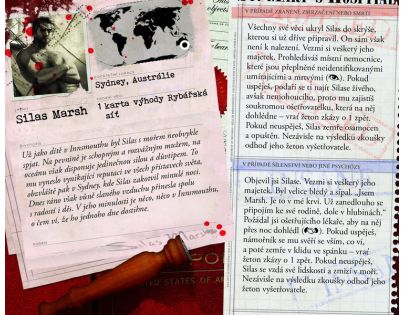 V PŘÍPADĚ ZRANĚNÍ, ZMRZAČENÍ NEBO SMRTI
Všechny své věci ukryl Silas do skrýše,
kterou si už dříve připravil. On sám však
není k nalezení. Vezmi si veškerý jeho
majetek. Prohledáváš místní nemocnice,
které jsou přeplněné neidentifikovanými
umírajícími a mrtvými (). Pokud
uspěješ, podaří se ti najít Silase živého,
avšak nemohoucího, proto mu zajistíš
soukromou ošetřovatelku, která na něj
dohlédne – vrať žeton zkázy o 1 zpět.
Pokud neuspěješ, Silas zemře osamocen
a opuštěn. Nezávisle na výsledku zkoušky
odhoď jeho žeton vyšetřovatele.
Sydney, Austrálie
Silas Marsh
1 karta výhody Rybářská
síť
Už jako dítě v Innsmouthu byl Silas s mořem neobvykle
spjat. Na pevnině je schopným a rozvážným mužem, na
oceánu však disponuje jedinečnou silou a důvtipem. To
mu vyneslo vynikající reputaci ve všech přístavech světa,
obzvláště pak v Sydney, kde Silas zakotvil minulé noci.
Dnes ráno však vůně slaného vzduchu přinesla spolu
s radostí i děs. V jeho minulosti je něco, něco v Innsmouthu,
o čem ví, že ho jednoho dne dostihne.
V PŘÍPADĚ ŠÍLENSTVÍ NEBO JINÉ PSYCHÓZY
Objevil jsi Silase. Vezmi si veškerý jeho
majetek. Byl velice bledý a sípal. „Jsem
Marsh. Je to v mé krvi. Už zanedlouho se
připojím ke své rodině, dole v hlubinách.“
Požádal jsi ošetřujícího lékaře, aby na něj
přes noc dohlédl (). Pokud uspěješ,
námořník se mu svěří se vším, co ví,
a poté zemře v klidu ve spánku – vrať
žeton zkázy o 1 zpět. Pokud neuspěješ,
Silas se vzdá své lidskosti a zmizí v moři.
Nezávisle na výsledku zkoušky odhoď jeho
žeton vyšetřovatele.